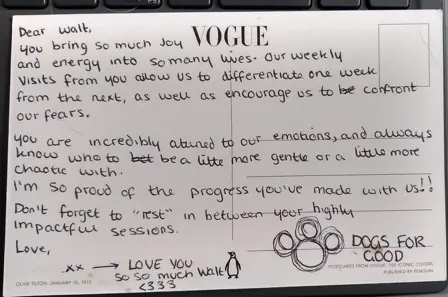 Dear Walt,
VOGUE
you bring so much joy
and energy into so many lives. Our weekly
visits from you allow us to differentiate one week
from the next, as well as encourage us to be confront
our fears.
you are incredibly attuned to our emotions, and always
know who to bet be a little more gentle or a little more
chaotic with.
I'm so proud of the progress you've made with us!!
Don't forget to "rest" in between your highly
impactful sessions.
Love,
xx → LOVE YOU
so so much Walt
<333
DOGS FOR
GOOD
POSTCARDS FROM VOGUE: 100 ICONIC COVERS
PUBLISHED BY PENGUIN